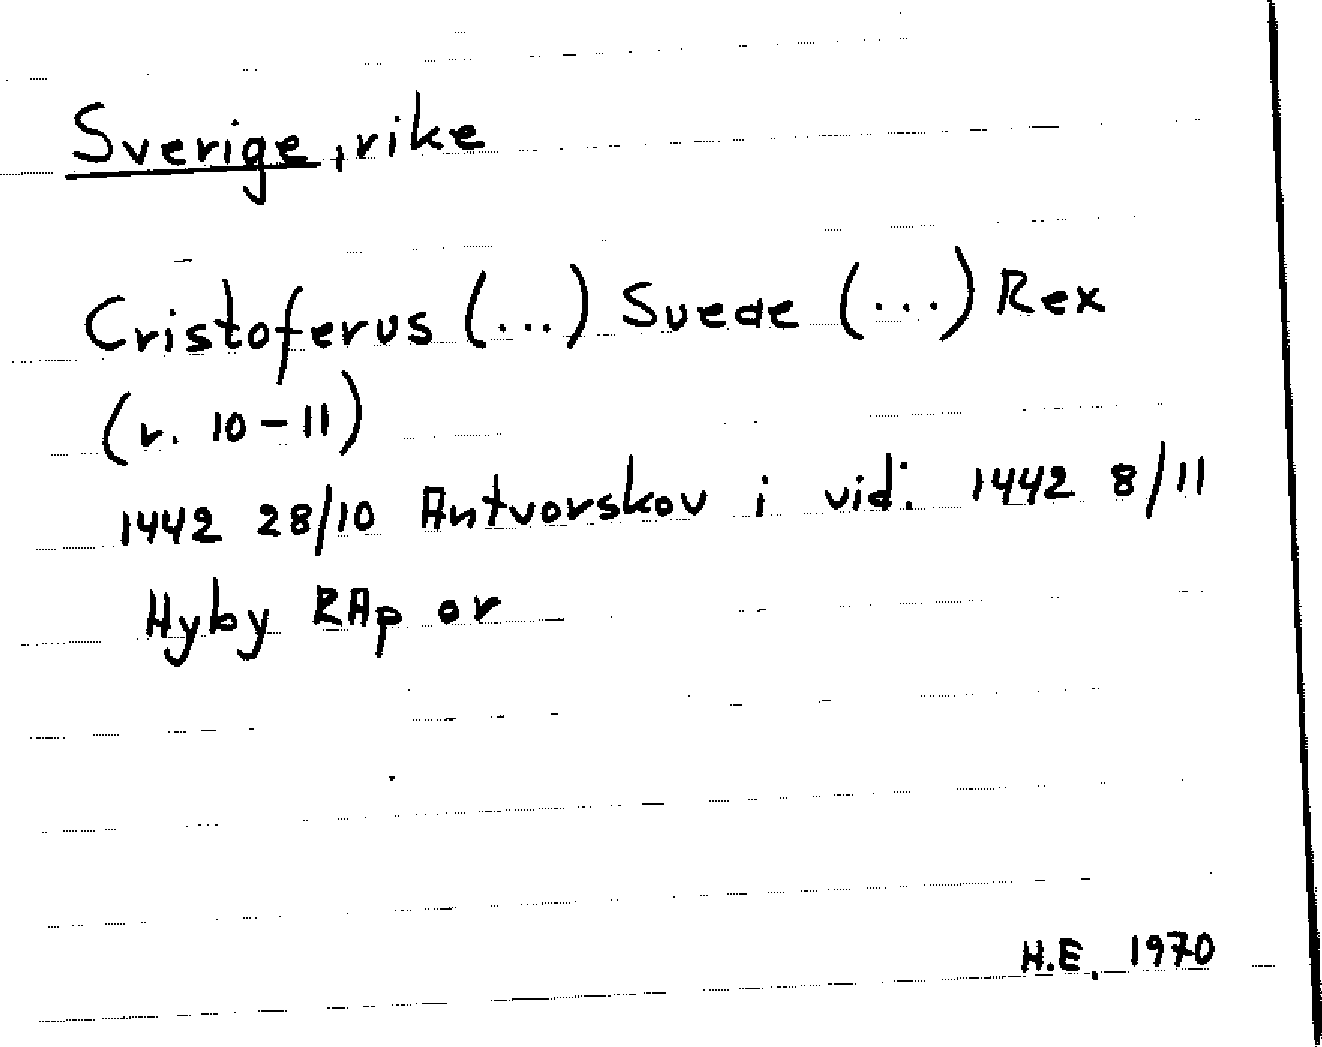 Sverige, rike
Cristoferus (...) Suede (...) Rex
(r. 10-11)
1442 28/10 Antvorskov i vid. 1442 8/11
Hyby RAp or
H.E. 1970